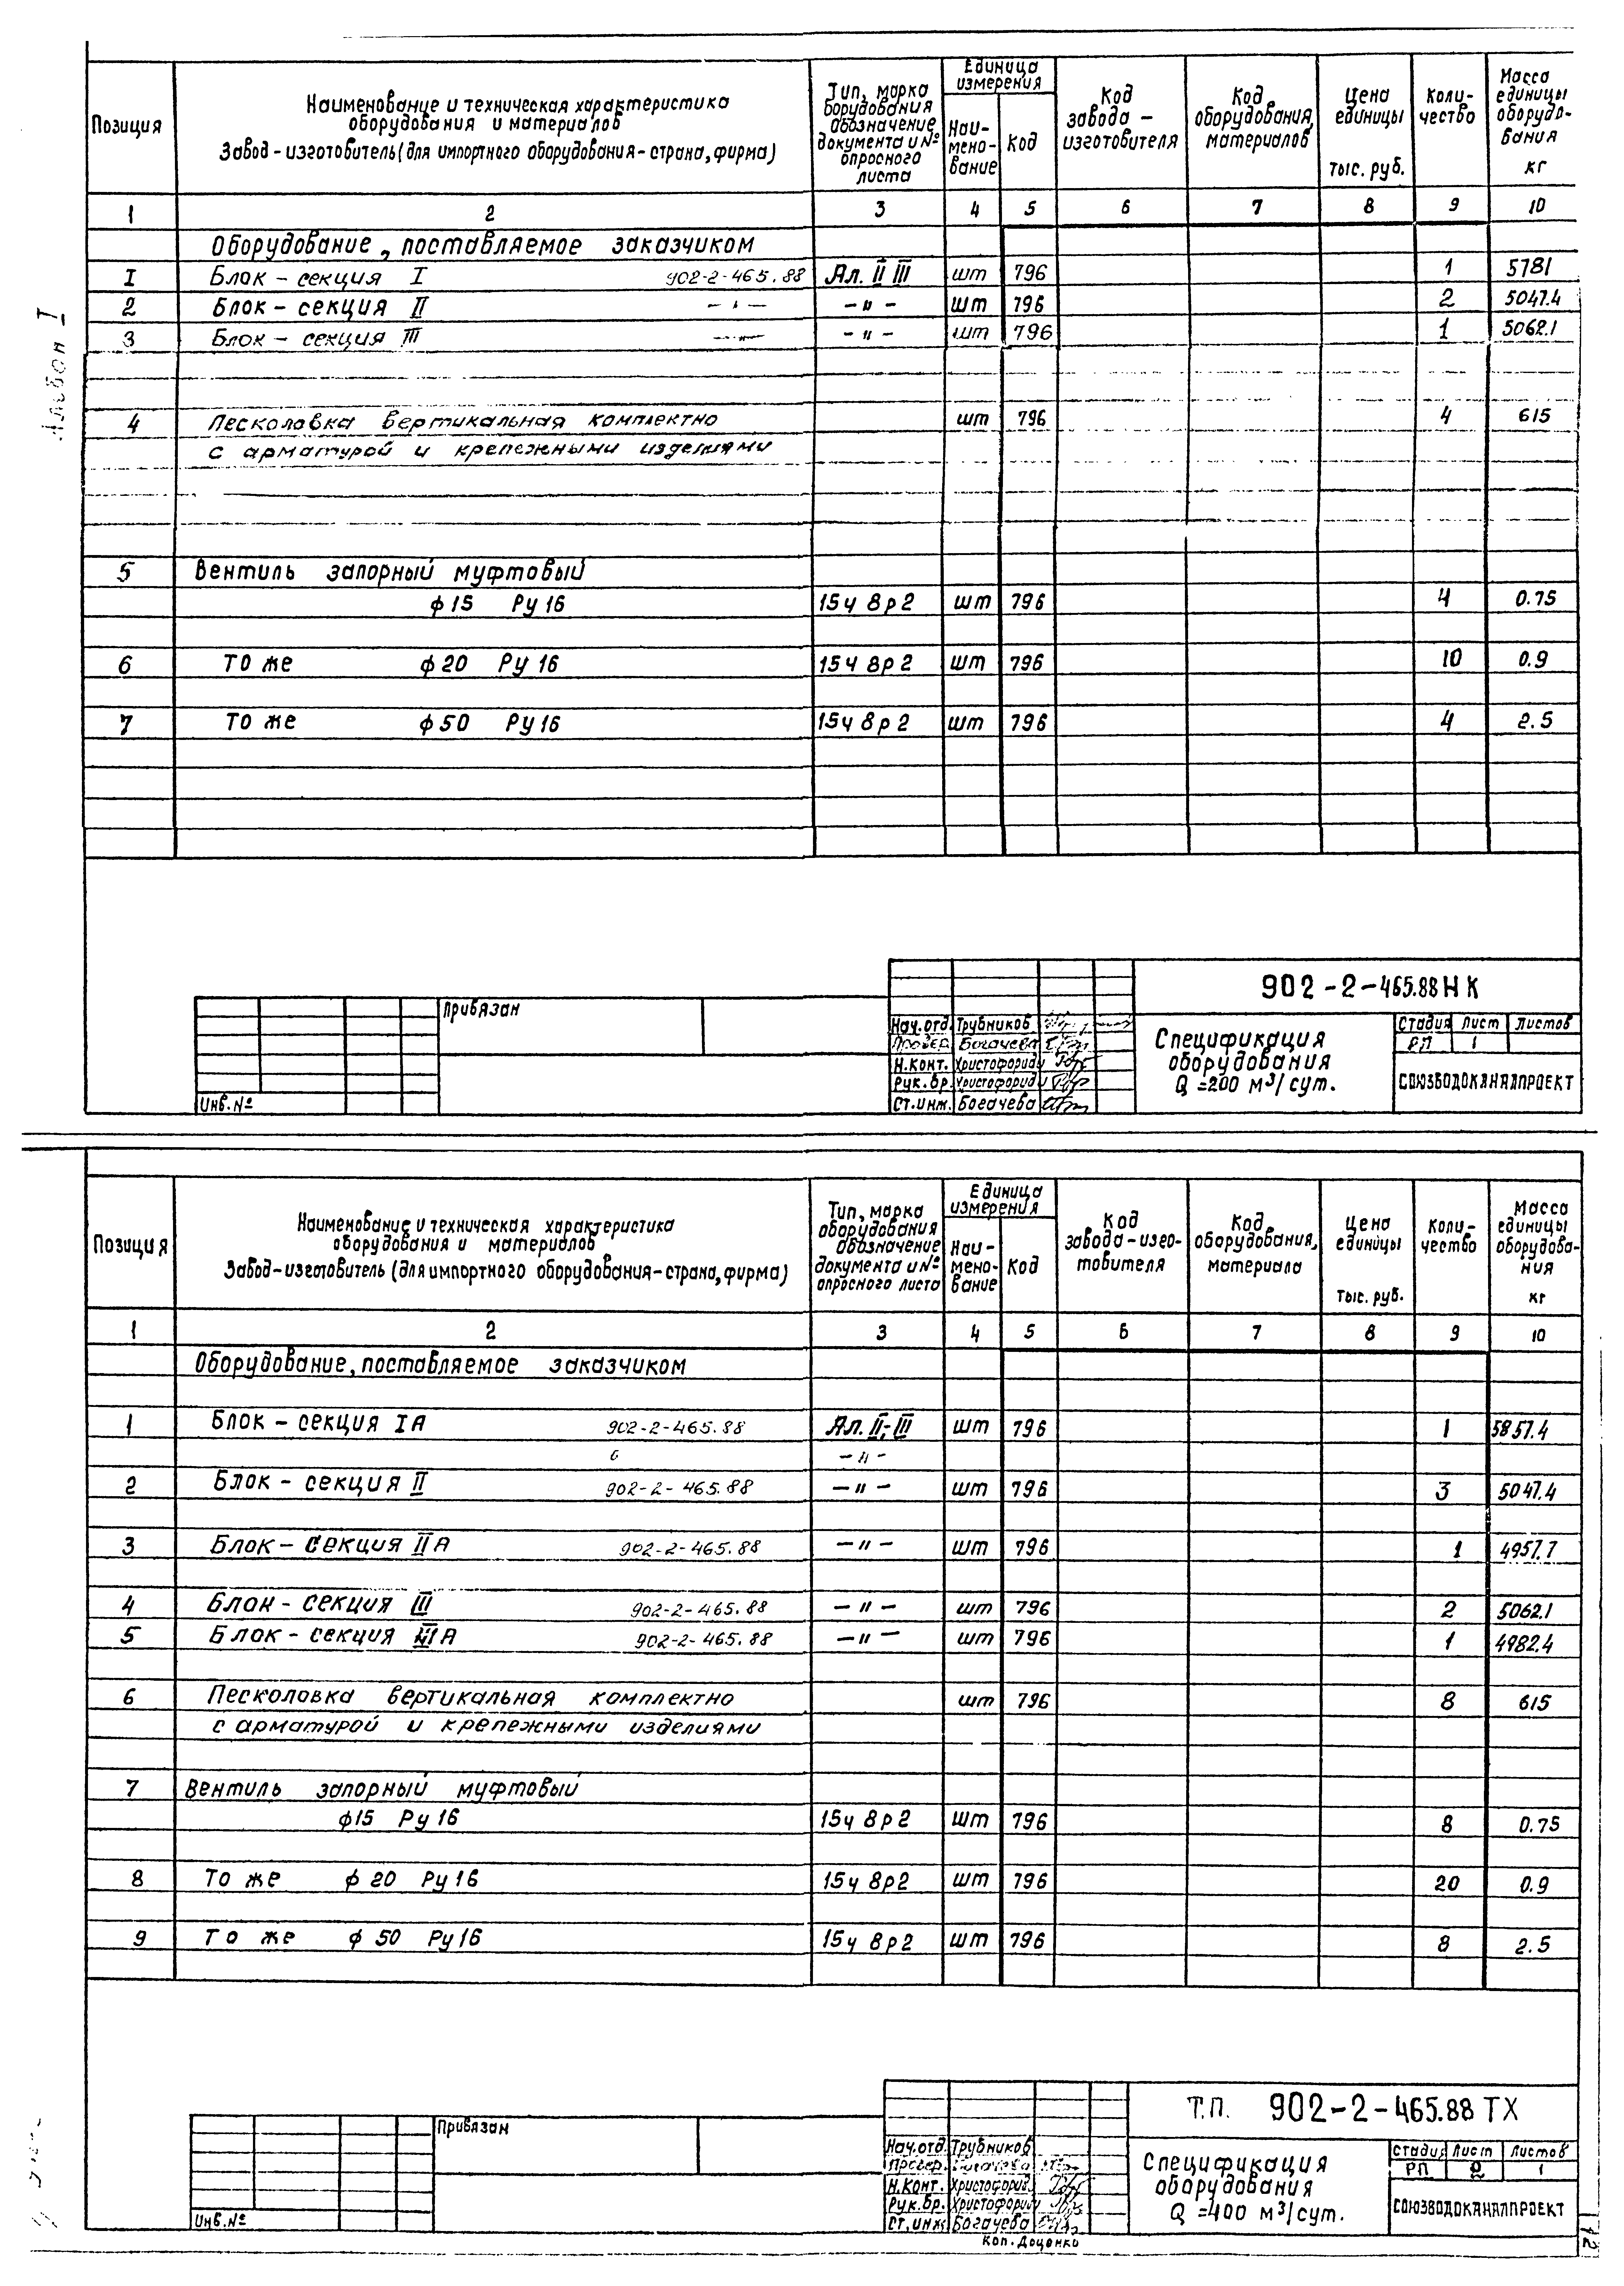 Альбом I
Позиция
Наименование и техническая характеристика
оборудования и материалов
Завод-изготовитель (для импортного оборудования-страна, фирма)
Тип, марка
борудования
обозначение
документа и №
опросного
листа
Единица
измерения
Наи-
мено-
вание
Код
Код
завода -
изготовителя
Код
оборудования,
материалов
Цена
единицы
тыс. руб.
Коли-
чество
Масса
единицы
оборудо-
вания
кг
1 2 3 4 5 6 7 8 9 10
Оборудование, поставляемое заказчиком
I Блок - секция I 902-2-465.88 Ал. II III шт 796 1 5781
2 Блок - секция II — " — — " — шт 796 2 5047.4
3 Блок - секция III — " — — " — шт 796 1 5062.1
4 Песколовка вертикальная комплектно шт 796 4 615
с арматурой и крепежными изделиями
5 Вентиль запорный муфтовый
ф 15 Ру 16 15ч 8р2 шт 796 4 0.75
6 То же ф 20 Ру 16 15ч 8р2 шт 796 10 0.9
7 То же ф 50 Ру 16 15ч 8р2 шт 796 4 2.5
Привязан
Инв. №
902-2-465.88 НК
Нач. отд. Трубников
Провер. Богачева
Н. конт. Христофориди
Рук. бр. Христофориди
Ст. инж. Богачева
Спецификация
оборудования
Q =200 м³/сут.
Стадия Лист Листов
РП 1
СОЮЗВОДОКАНАЛПРОЕКТ
Позиция
Наименование и техническая характеристика
оборудования и материалов
Завод-изготовитель (для импортного оборудования-страна, фирма)
Тип, марка
оборудования
обозначение
документа и №
опросного листа
Единица
измерения
Наи-
мено-
вание
Код
Код
завода-изго-
товителя
Код
оборудования,
материала
Цена
единицы
тыс. руб.
Коли-
чество
Масса
единицы
оборудова-
ния
кг
1 2 3 4 5 6 7 8 9 10
Оборудование, поставляемое заказчиком
1 Блок - секция I А 902-2-465.88 Ал. II-III шт 796 1 5857.4
— " —
2 Блок - секция II 902-2-465.88 — " — шт 796 3 5047.4
3 Блок - секция II А 902-2-465.88 — " — шт 796 1 4957.7
4 Блок - секция III 902-2-465.88 — " — шт 796 2 5062.1
5 Блок - секция III А 902-2-465.88 — " — шт 796 1 4982.4
6 Песколовка вертикальная комплектно шт 796 8 615
с арматурой и крепежными изделиями
7 Вентиль запорный муфтовый
ф15 Ру 16 15ч 8р2 шт 796 8 0.75
8 То же ф 20 Ру 16 15ч 8р2 шт 796 20 0.9
9 То же ф 50 Ру 16 15ч 8р2 шт 796 8 2.5
Привязан
Инв. №
Т.П. 902-2-465.88 ТХ
Нач. отд. Трубников
Провер. Богачева
Н. Конт. Христофорид
Рук. бр. Христофориди
Ст. инж Богачева
Спецификация
оборудования
Q =400 м³/сут.
Стадия Лист Листов
РП 2 1
СОЮЗВОДОКАНАЛПРОЕКТ
Коп. Доценко
12